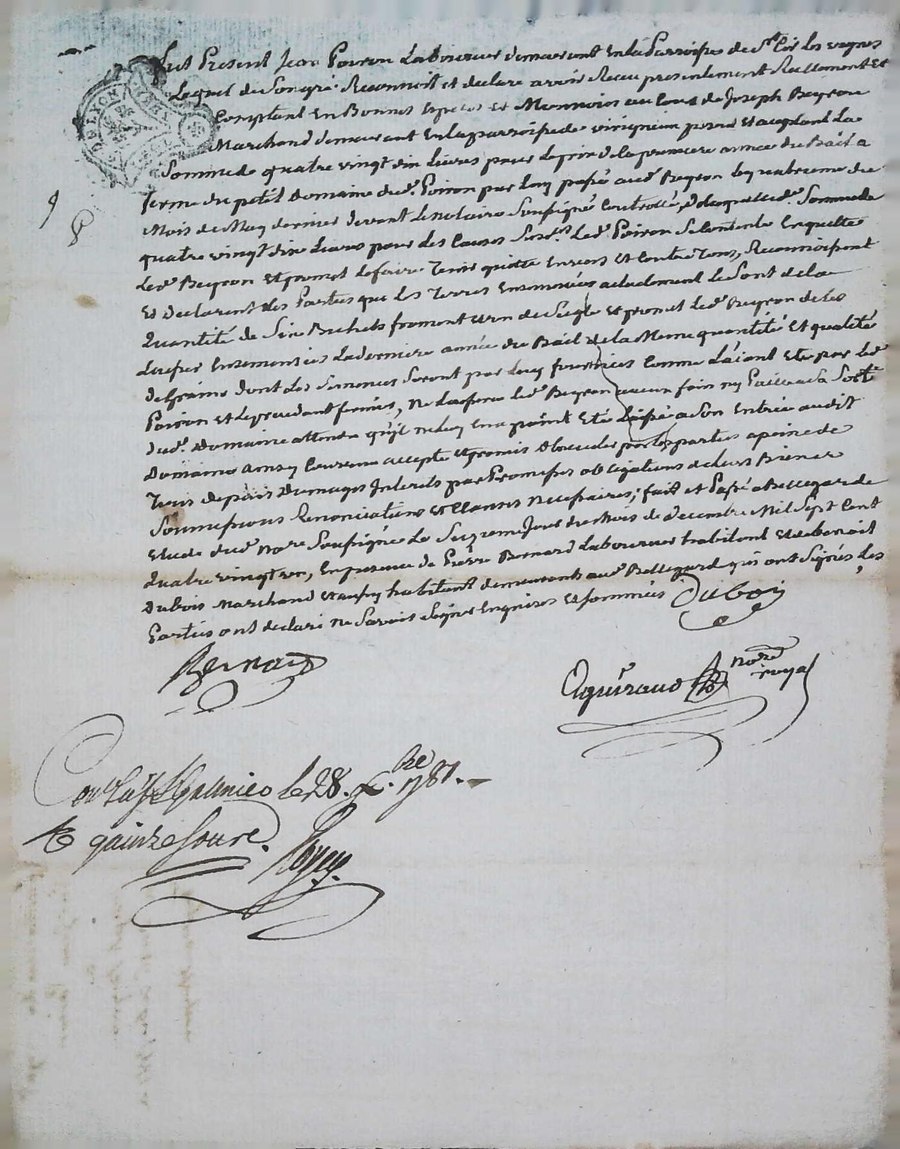 fut Present Jean Poiron Laboureur demeurant En la Parroisse de St Cir les vignes
Lequel de Son gré Reconnoit et declare avoir Receu presentement Reellement Et
Comptant En Bonnes Especes et Monnoies au Cours de Joseph Beyron
Marchand demeurant En la parroisse de present Et acceptant La
Somme de quatre vingt dix Livres pour le prix de la premiere année du Bail a
ferme du petit Domaine dud. Poiron par luy passé aud. Beyron le quatrieme du
Mois de May dernier devant Le Notaire Soussigné Controllé, de laquelle de. Somme de
quatre vingt dix Livres pour des Causes Susd. Led. Poiron Se Contente En quitte
Led. Beyron Et promet le faire Tenir quitte Envers Et Contre Tous, Reconnoissent
Et declarent des Parties que les Terres Ensemencées actuellement Le Sont de la
Quantité de Six Bichets froment et un de Seigle et promet led. Beyron de les
Laisser Ensemencées La derniere année du Bail de la Meme quantité Et qualité
de Grains dont les Semences Seront par luy fournies Comme L'aiant Eté par led.
Poiron et , Ne Laissera led. Beyron aucun foin ny Paille a Sa Sortie
dud. Domaine attendu qu'il ne luy En a point Eté Laissé a Son Entrée audit
Domaine Ainsy Convenu accepté et promis observer par les parties a peine de
Tous depens Dommages Interets par Promesses obligations de leurs Biens
Soumissions Renonciations et Clauses Necessaires; fait et Passé a Bellegarde
Etude dud. Nore Soussigné Le Seizieme Jour du Mois de Decembre Mil Sept Cent
Quatre vingt un, En presence de Pierre Bernard Laboureur habitant et de benoit
Dubois Marchand et aussy habitant demeurants aud. Bellegard qui ont Signés, Les
Parties ont declaré ne Savoir Signer Enquises Et Sommées Duboy
Bernard
nore royal
le 28. Xbre 1781.
quinze Sous